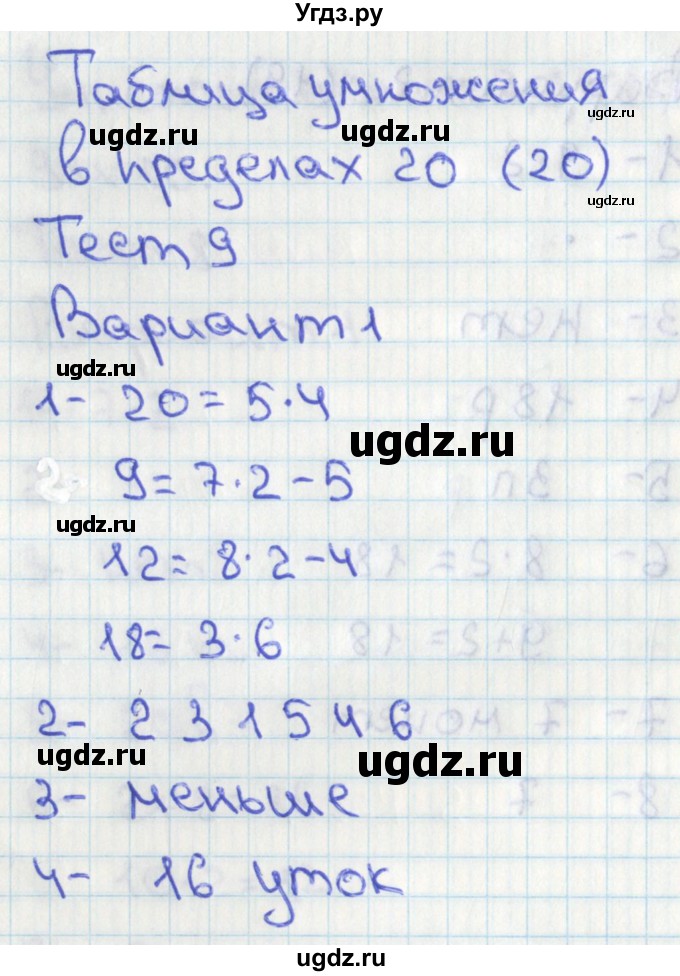 Угдз.ру
Таблица умножения
ugdz.ru ugdz.ru ugdz.ru
в пределах 20 (20)
ugdz.ru
Тест 9
Вариант 1
ugdz.ru
1- 20 = 5·4
ugdz.ru
9 = 7·2-5
ugdz.ru
12 = 8·2-4
18 = 3·6
2- 2 3 1 5 4 6
ugdz.ru ugdz.ru
3- меньше
4- 16 уток
ugdz.ru